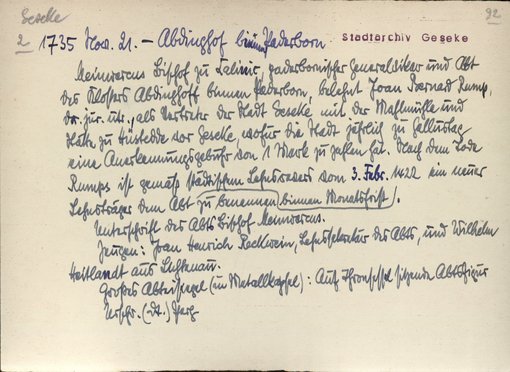 Geseke
92
2 1735 Nov. 21. – Abdinghof binnen Paderborn
Stadtarchiv Geseke
Meinwercus Bischof zu Callinic, paderbornischer Generalvikar und Abt
des Klosters Abdinghoff binnen Paderborn, belehnt Joan Bernard Rump,
dr. jur. utr., als Vertreter der Stadt Geseke mit der Mahlmühle und
Stätte zu Hüstedde vor Geseke, wofür die Stadt jährlich zu Gallustag
eine Anerkennungsgebühr von 1 Mark zu zahlen hat. Nach dem Tode
Rumps ist gemäss städtischem Lehnsrevers vom 3. Febr. 1422 ein neuer
Lehnsträger dem Abt zu benennen binnen Monatsfrist.
Unterschrift des Abts Bischof Meinwercus.
Zeugen: Joan Henrich Rackwein, Lehnssekretar des Abts, und Wilhelm
Heitlandt aus
Grosses Abteisiegel (in Metallkapsel): Auf Thronsessel sitzende Abtsfigur
Urschr. (dt.) Perg